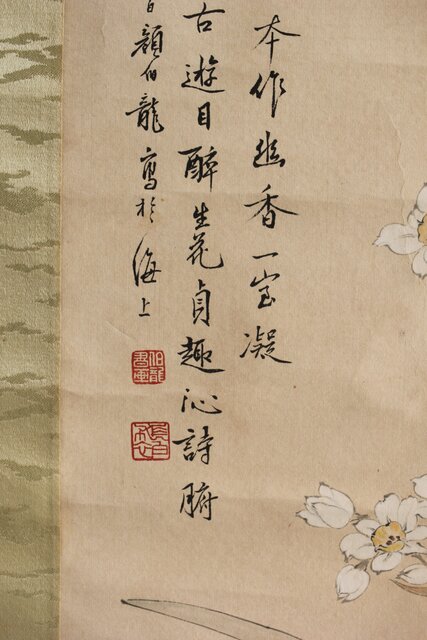 本作幽香一室凝
古遊目醉生花貞趣沁詩腑
日顏伯龍寫於海上
伯龍書畫